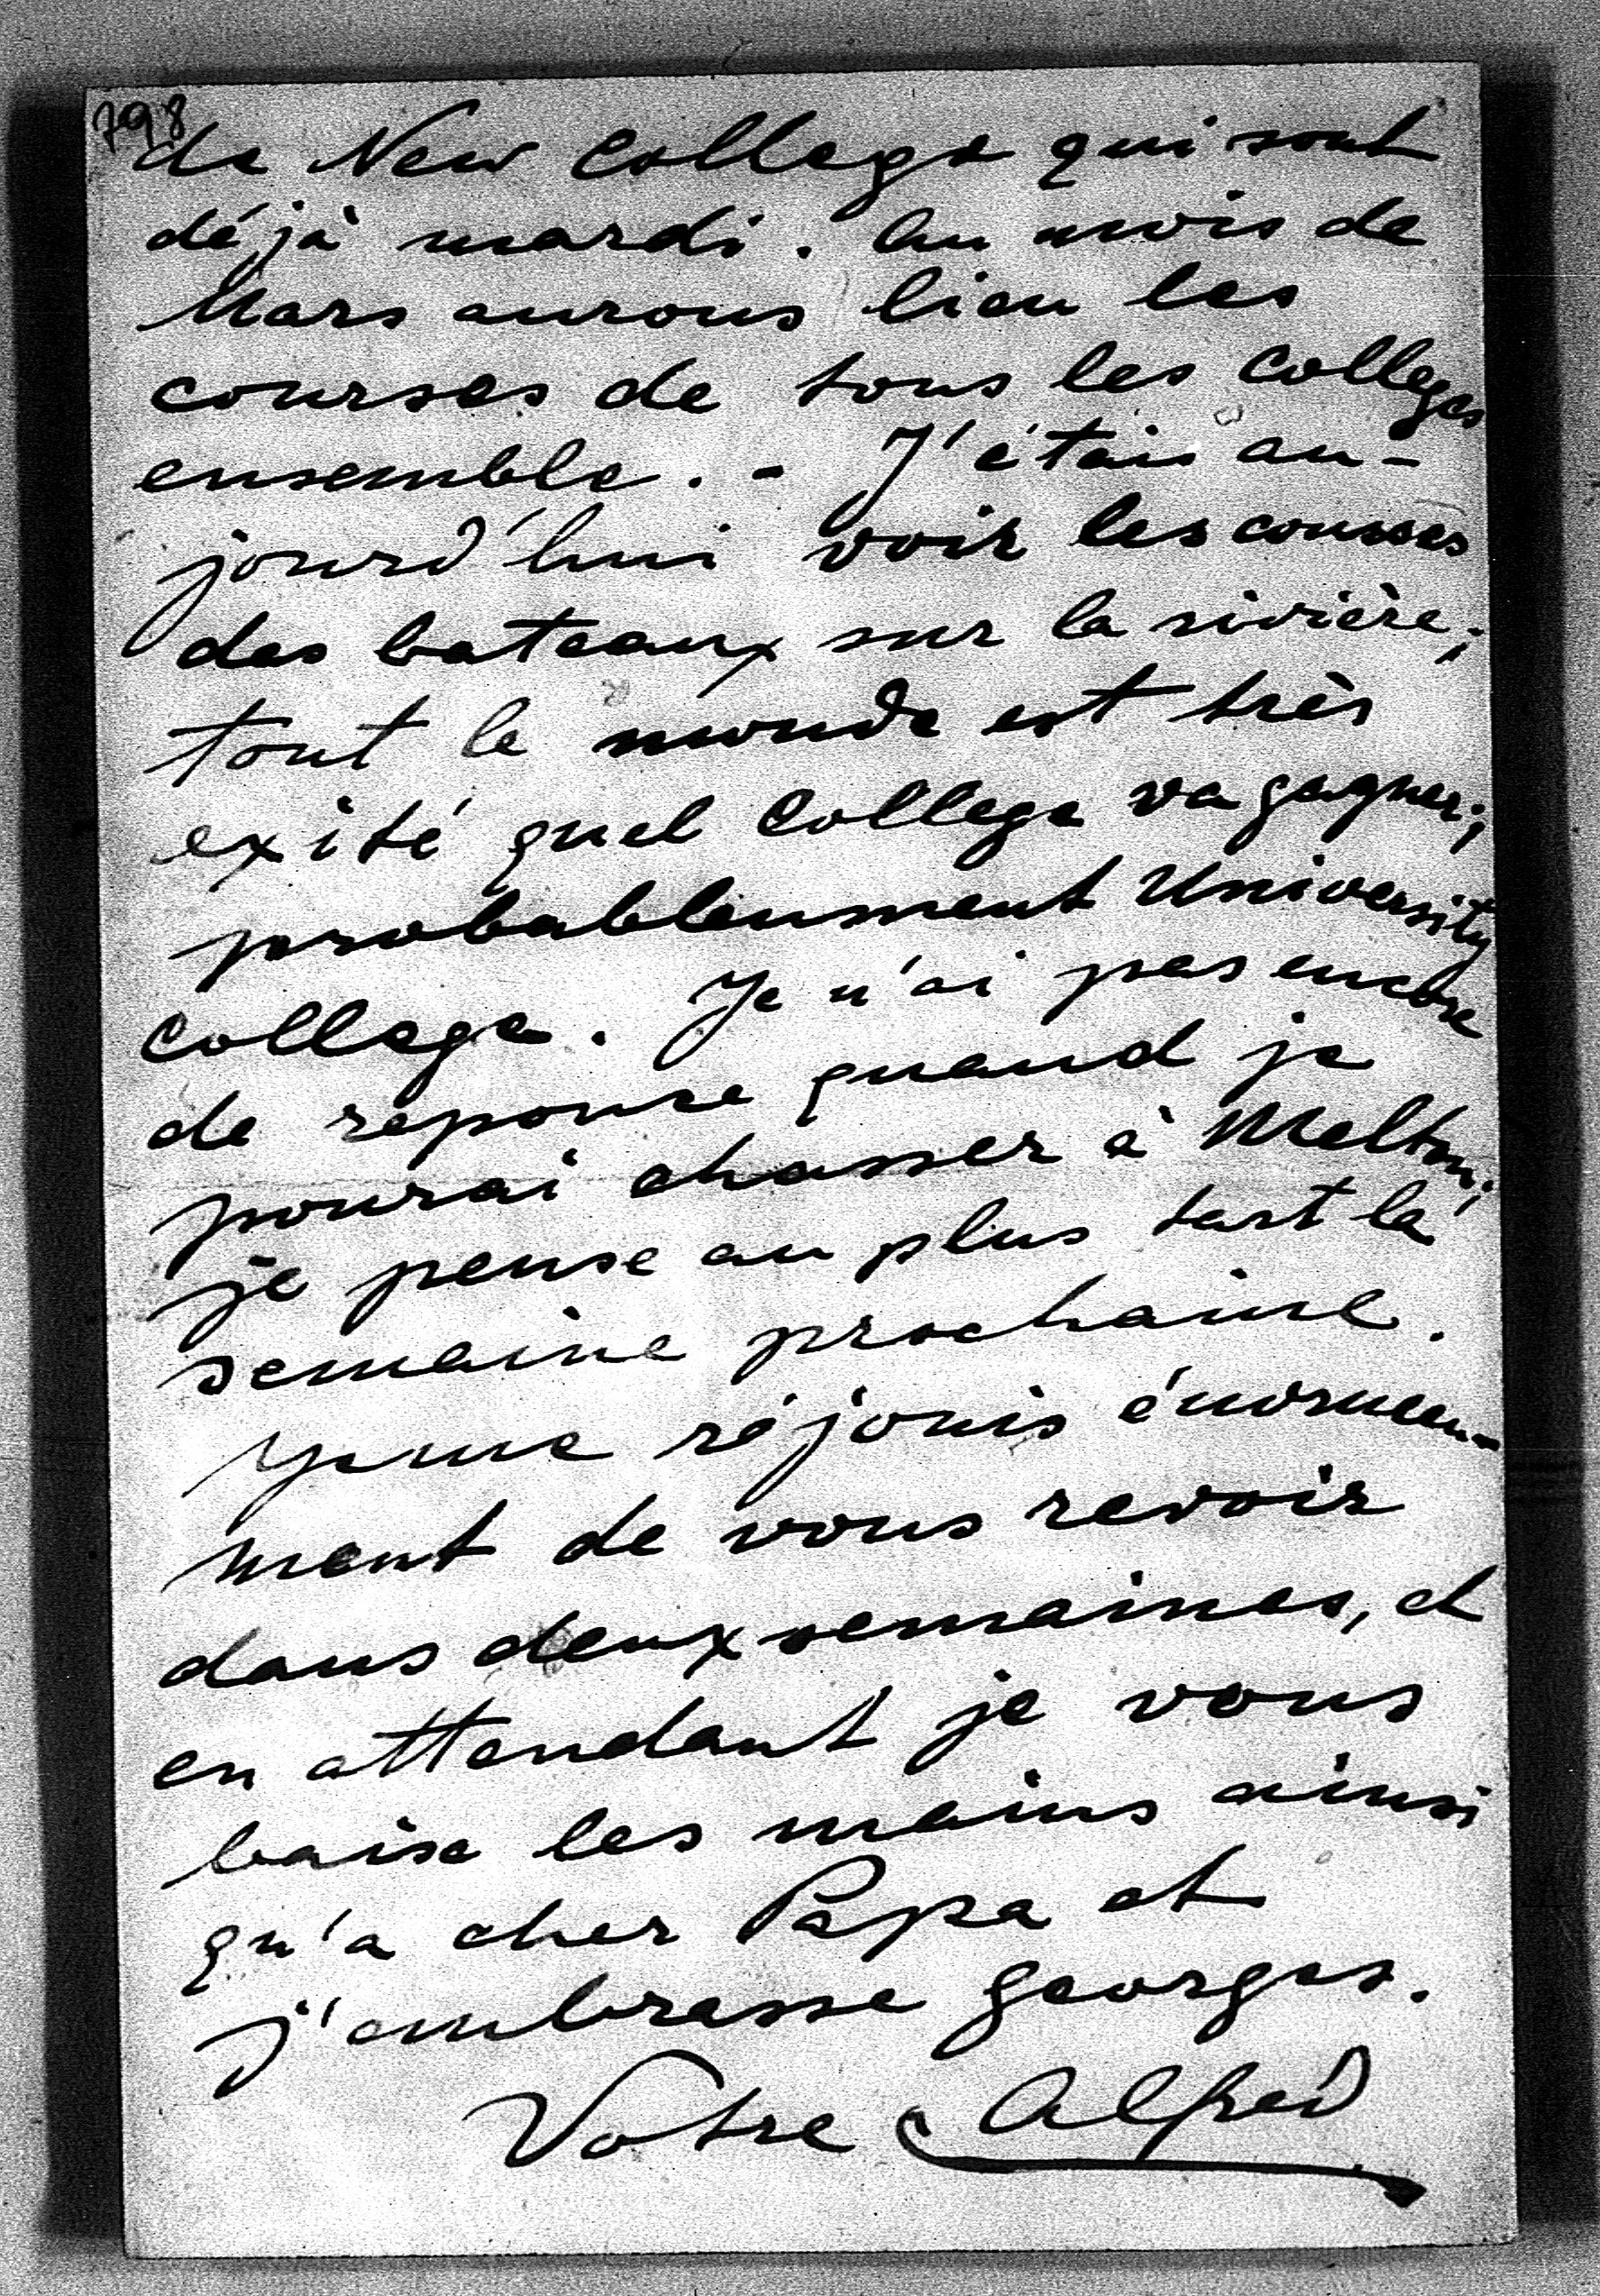 798
de New College qui sont
déjà mardi. Au mois de
Mars aurons lieu les
courses de tous les Colleges
ensemble. - J'étais au-
jourd'hui voir les courses
des bateaux sur la rivière;
tout le monde est très
exité quel College va gagner;
probablement University
College. Je n'ai pas encore
de reponse quand je
pourai chasser à Melton;
je pense au plus tart la
semaine prochaine.
Je me réjouis énormem-
ment de vous revoir
dans deux semaines, et
en attendant je vous
baise les mains ainsi
qu'a cher Papa et
j'embrasse Georges.
Votre Alfred